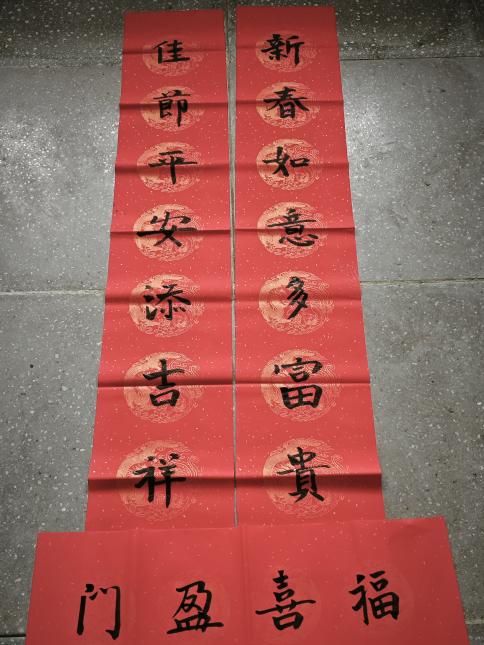 新春如意多富貴
佳節平安添吉祥
福喜盈门